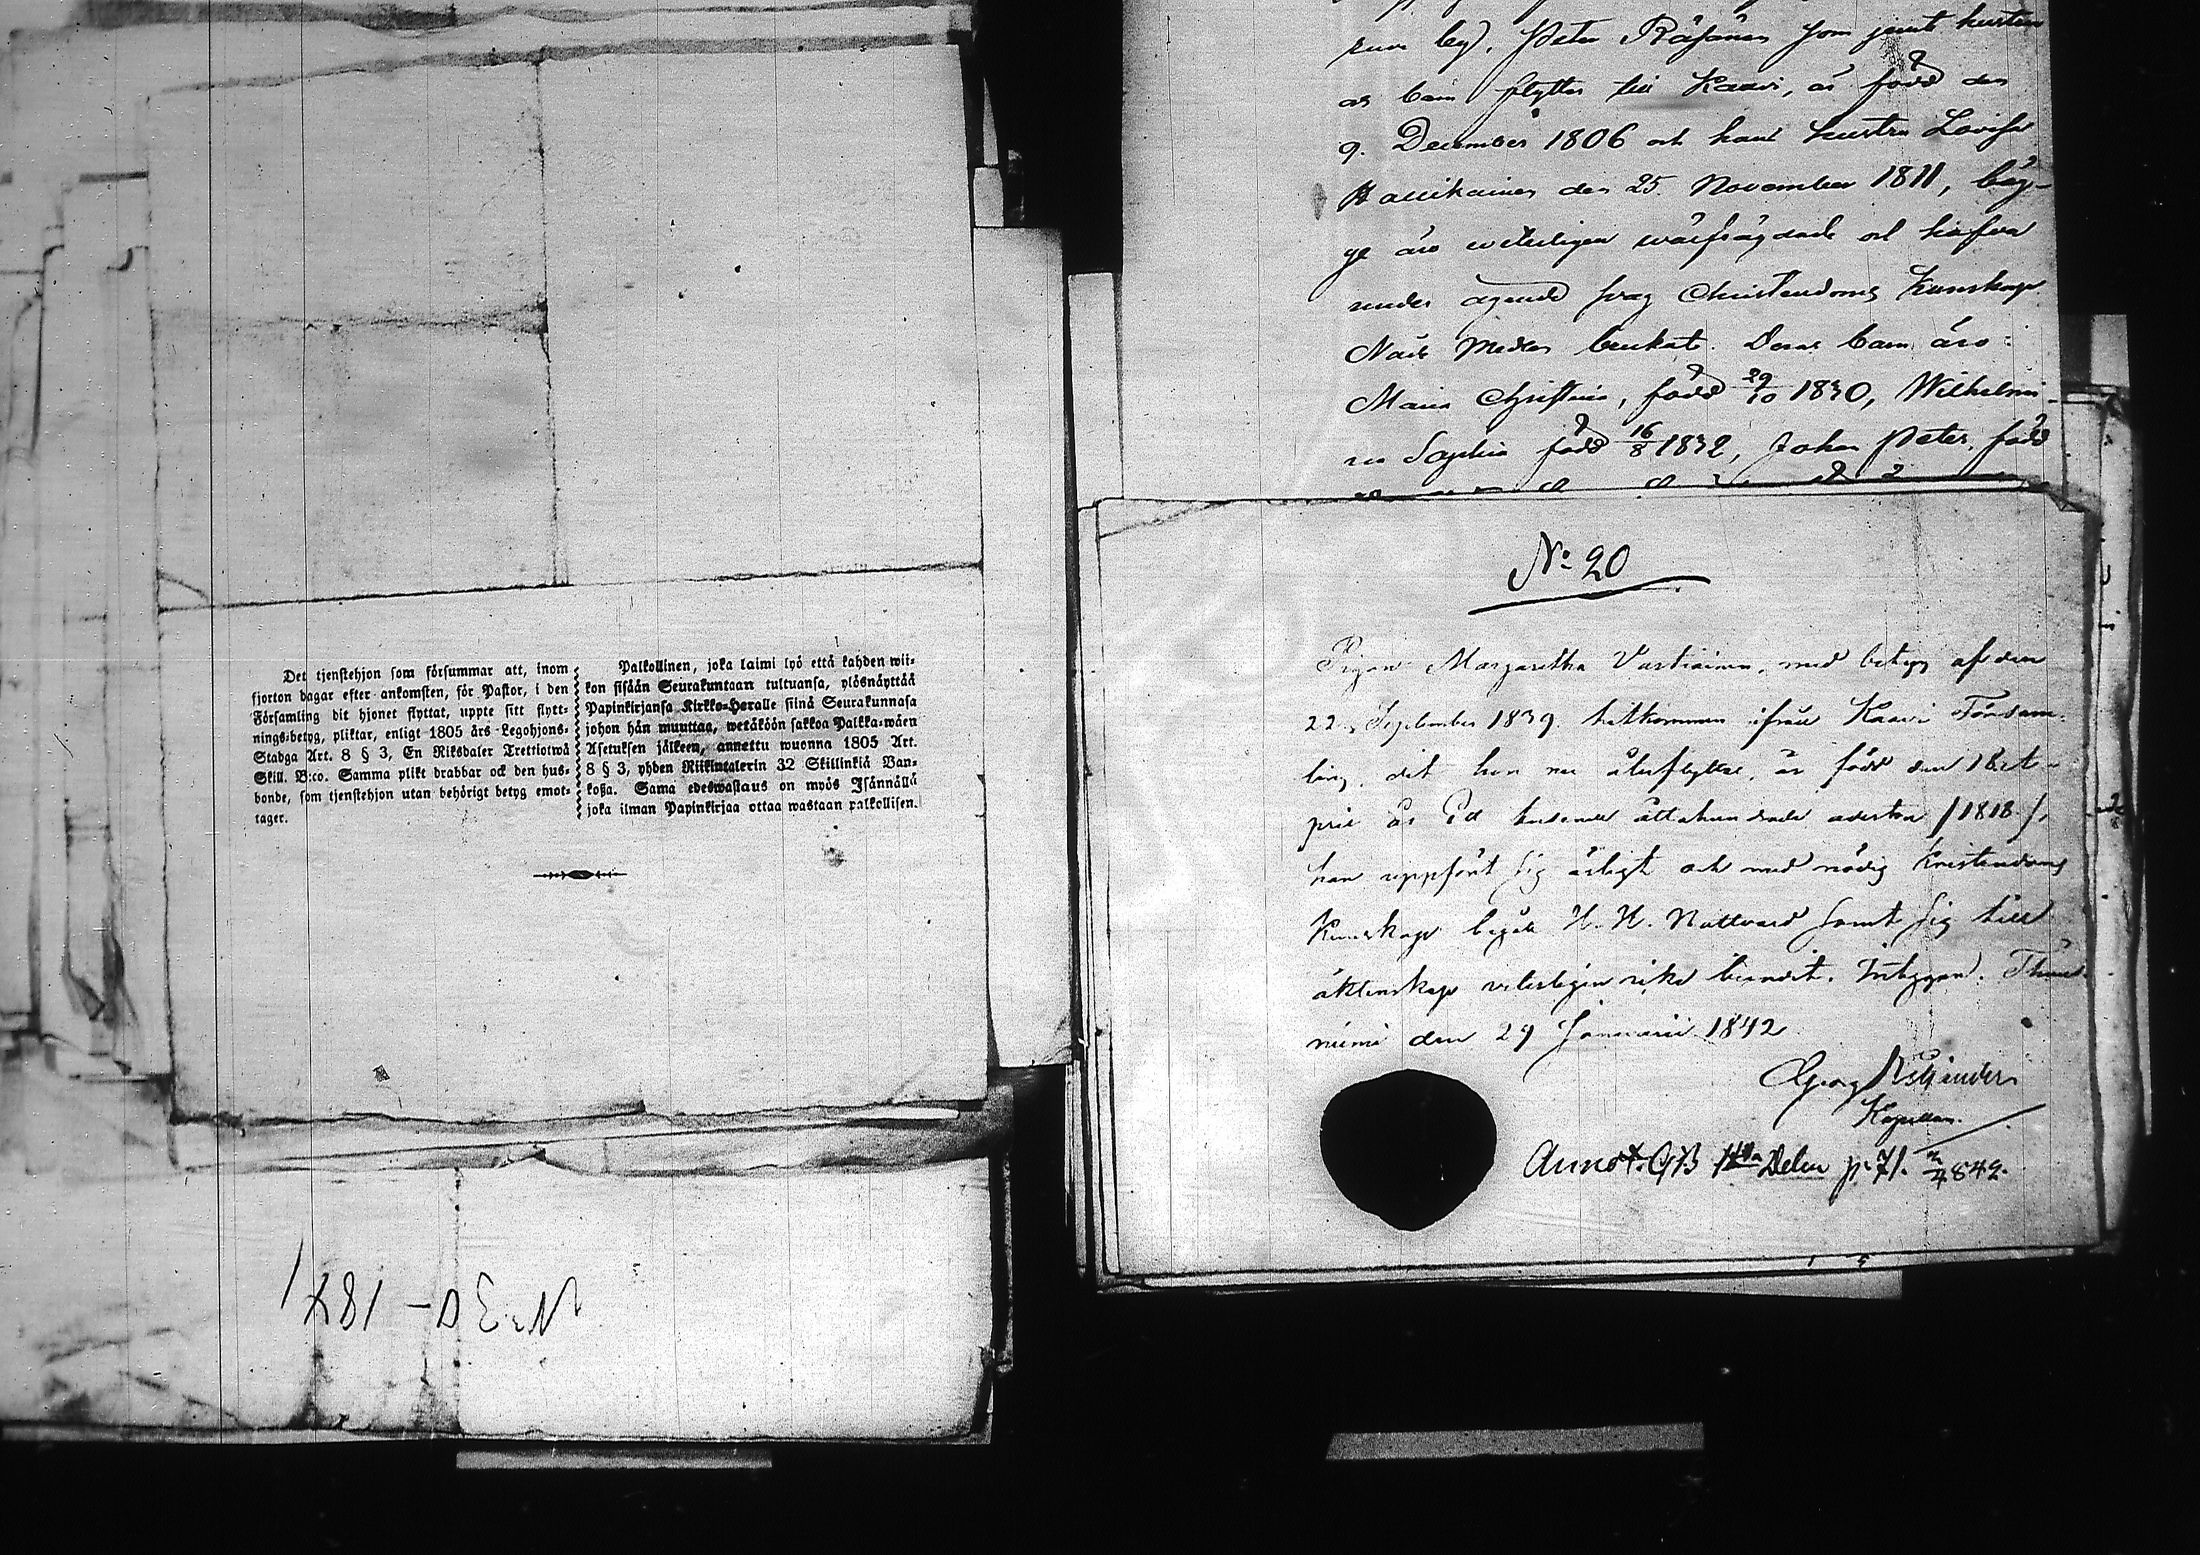 Det tjenstehjon som försummar att, inom
fjorton dagar efter ankomsten, för Pastor, i den
Församling dit hjonet flyttat, uppte sitt flytt-
nings-betyg, pliktar, enligt 1805 års Legohjons-
Stadga Art. 8 § 3, En Riksdaler Trettiotwå
Skill. B:co. Samma plikt drabbar ock den hus-
bonde, som tjenstehjon utan behörigt betyg emot-
tager.
Palkollinen, joka laimi lyö että kahden wii-
kon sisään Seurakuntaan tultuansa, ylösnäyttää
Papinkirjansa Kirkko-Heralle siinä Seurakunnasa
johon hän muuttaa, wetäköön sakkoa Palkka-wäen
Asetuksen jälkeen, annettu wuonna 1805 Art.
8 § 3, yhden Riikintalerin 32 Skillinkiä Ban-
koßa. Sama edeswastaus on myös Isännällä
joka ilman Papinkirjaa ottaa wastaan palkollisen.
1841
by, Peter Räsänen som jemte hustru
och barn flyttar till Kaavi, är född den
9. December 1806 och hans hustru Lovisa
den 25 November 1811, båg-
ge äro och hafva
under ägande svag Christendoms Kunskap
Nåde Medlen brukat. Deras barn äro:
Maria Christina, född 29/10 1830, Wilhelmi-
na Sophia född 16/8 1832, Johan Peter, född
No 20
Pigan Margaretha Vartiainen, med betyg af den
22. September 1839 hitkommen ifrån Kaavi Försam-
ling, dit hon nu återflyttar, är född den 18 A-
pril år Ett tusende åttahundrade aderton /1818/.
har uppfört sig ärligt och med nödig Kristendoms
Kunskap begått H. H. Nattvard samt sig till
äktenskap veterligen icke bundit. Intygar.
niemi den 29 Januarii 1842
Georg
Kapellan.
Annot. Delen p. 71. 1842.